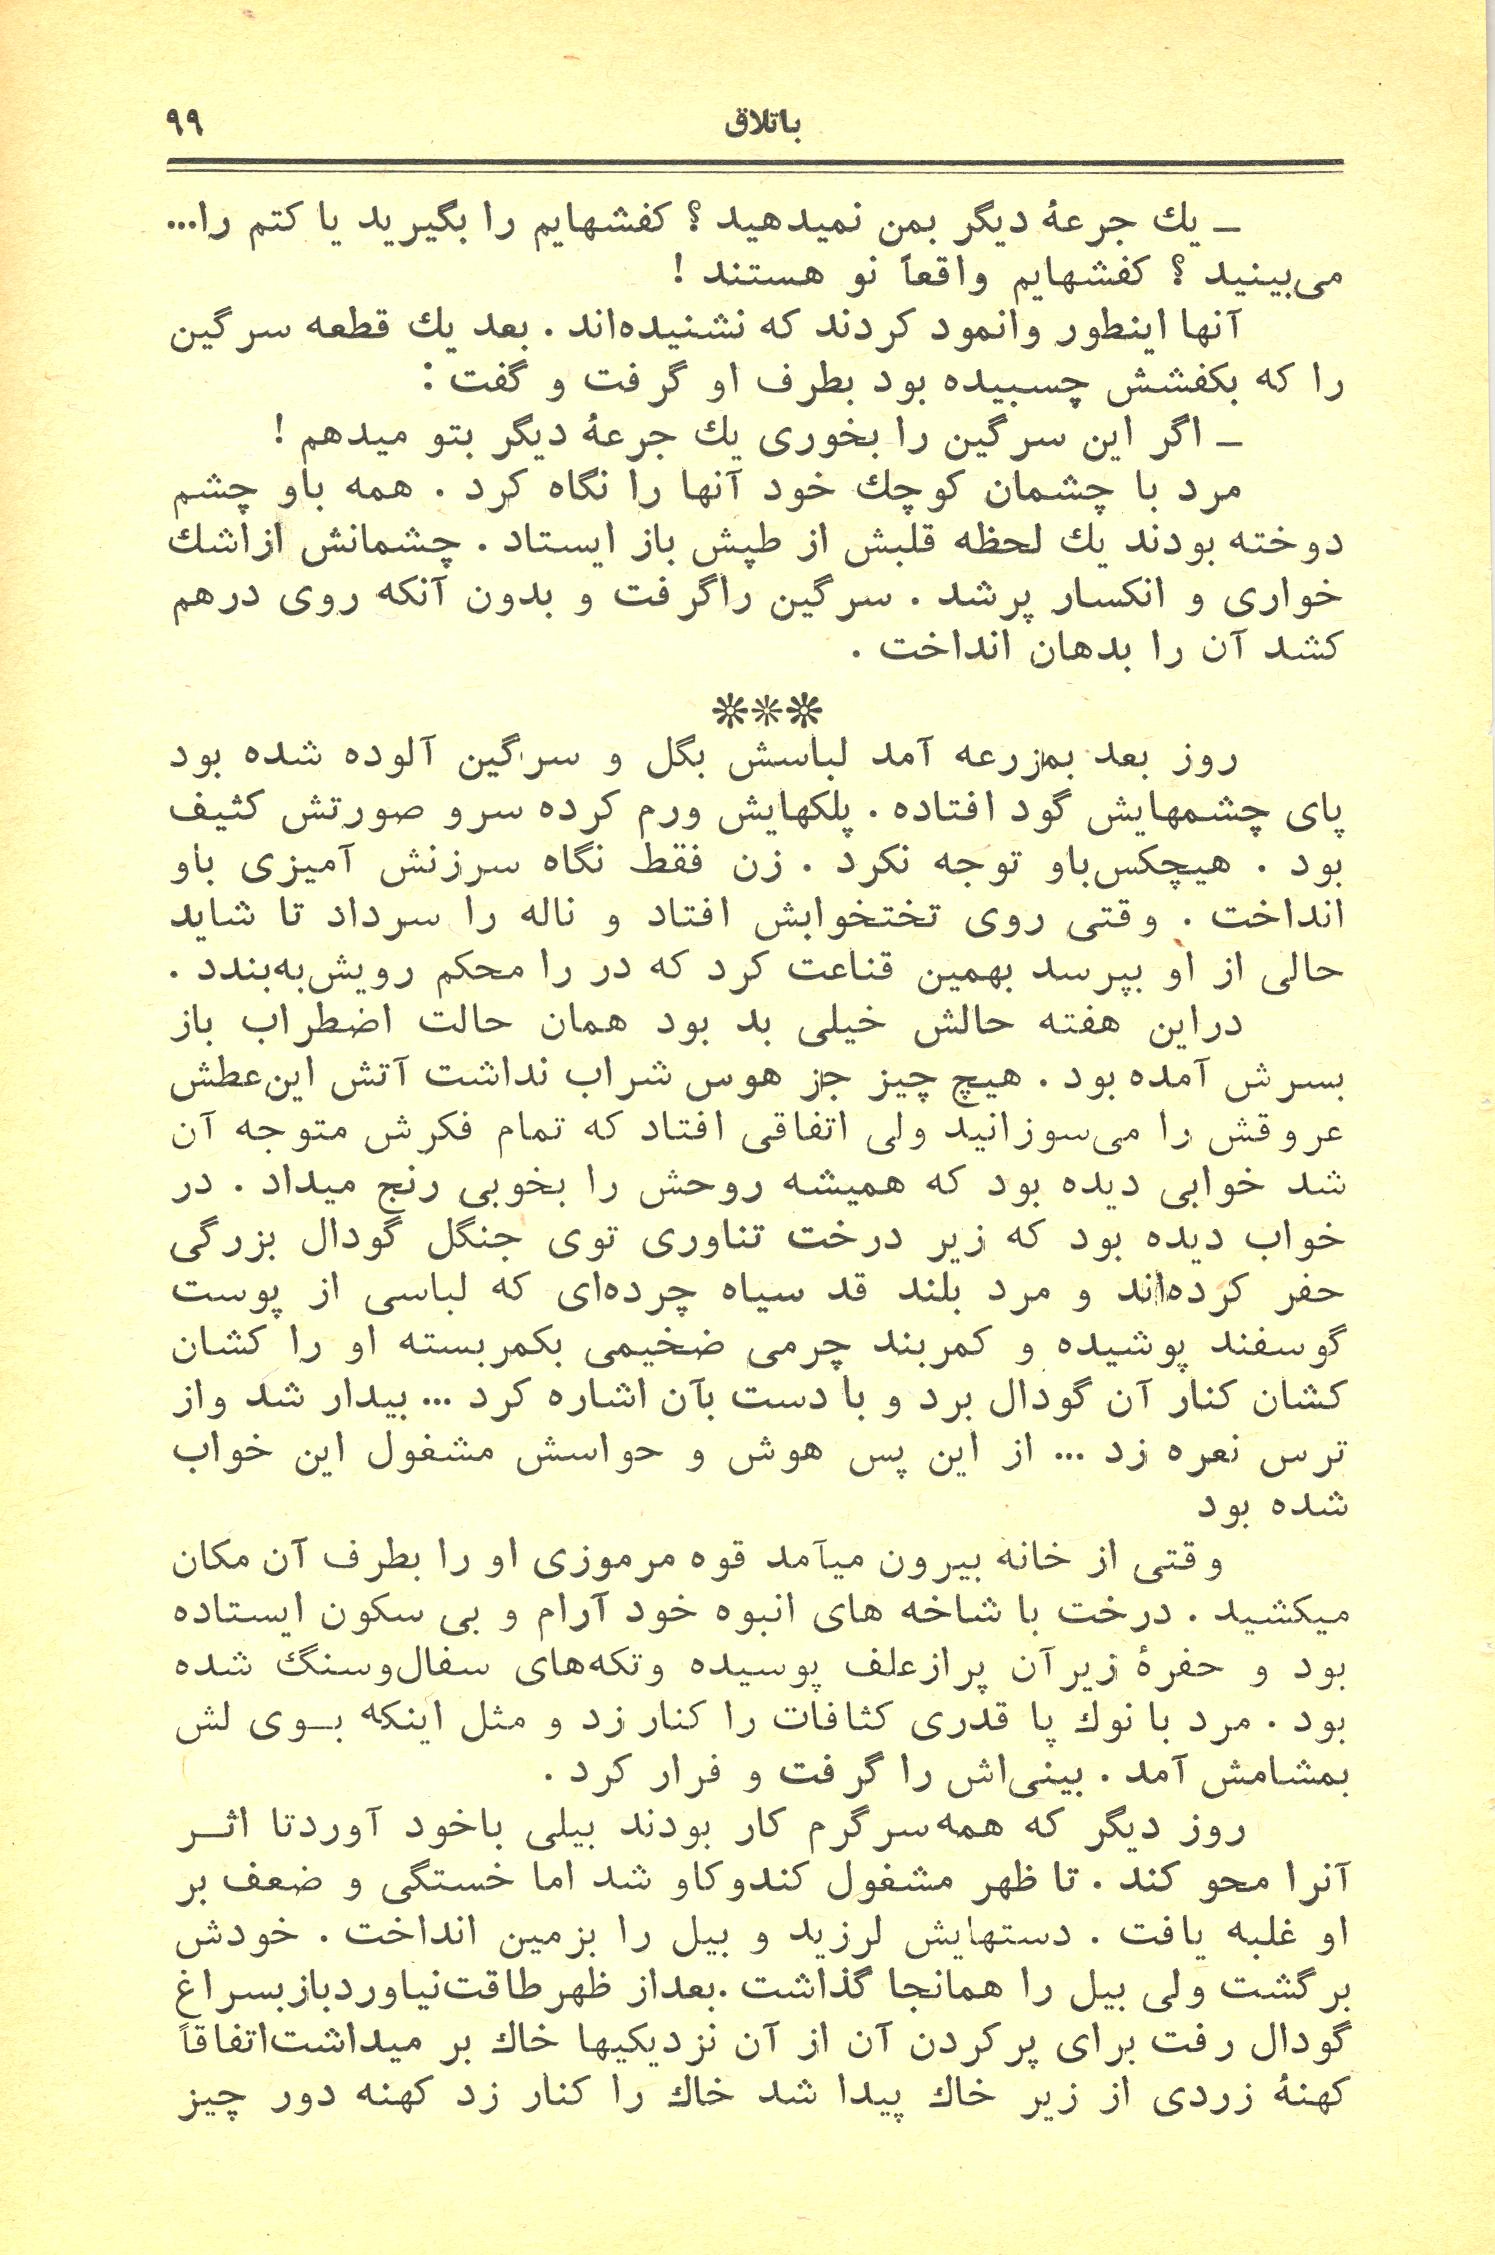 باتلاق ۹۹
ـ یك جرعهٔ دیگر بمن نمیدهید ؟ کفشهایم را بگیرید یا کتم را...
می‌بینید ؟ کفشهایم واقعاً نو هستند !
آنها اینطور وانمود کردند که نشنیده‌اند . بعد یك قطعه سرگین
را که بکفشش چسبیده بود بطرف او گرفت و گفت :
ـ اگر این سرگین را بخوری یك جرعهٔ دیگر بتو میدهم !
مرد با چشمان کوچك خود آنها را نگاه کرد . همه باو چشم
دوخته بودند یك لحظه قلبش از طپش باز ایستاد . چشمانش ازاشك
خواری و انکسار پرشد . سرگین راگرفت و بدون آنکه روی درهم
کشد آن را بدهان انداخت .
***
روز بعد بمزرعه آمد لباسش بگل و سرگین آلوده شده بود
پای چشمهایش گود افتاده . پلکهایش ورم کرده سرو صورتش کثیف
بود . هیچکس‌باو توجه نکرد . زن فقط نگاه سرزنش آمیزی باو
انداخت . وقتی روی تختخوابش افتاد و ناله را سرداد تا شاید
حالی از او بپرسد بهمین قناعت کرد که در را محکم رویش‌به‌بندد .
دراین هفته حالش خیلی بد بود همان حالت اضطراب باز
بسرش آمده بود . هیچ چیز جز هوس شراب نداشت آتش این‌عطش
عروقش را می‌سوزانید ولی اتفاقی افتاد که تمام فکرش متوجه آن
شد خوابی دیده بود که همیشه روحش را بخوبی رنج میداد . در
خواب دیده بود که زیر درخت تناوری توی جنگل گودال بزرگی
حفر کرده‌اند و مرد بلند قد سیاه چرده‌ای که لباسی از پوست
گوسفند پوشیده و کمربند چرمی ضخیمی بکمربسته او را کشان
کشان کنار آن گودال برد و با دست بآن اشاره کرد ... بیدار شد واز
ترس نعره زد ... از این پس هوش و حواسش مشغول این خواب
شده بود
وقتی از خانه بیرون میآمد قوه مرموزی او را بطرف آن مکان
میکشید . درخت با شاخه های انبوه خود آرام و بی سکون ایستاده
بود و حفرهٔ زیرآن پرازعلف پوسیده وتکه‌های سفال‌وسنگ شده
بود . مرد با نوك پا قدری کثافات را کنار زد و مثل اینکه بـوی لش
بمشامش آمد . بینی‌اش را گرفت و فرار کرد .
روز دیگر که همه‌سرگرم کار بودند بیلی باخود آوردتا اثـر
آنرا محو کند . تا ظهر مشغول کندوکاو شد اما خستگی و ضعف بر
او غلبه یافت . دستهایش لرزید و بیل را بزمین انداخت . خودش
برگشت ولی بیل را همانجا گذاشت .بعداز ظهرطاقت‌نیاوردبازبسراغ
گودال رفت برای پرکردن آن از آن نزدیکیها خاك بر میداشت‌اتفاقاً
کهنهٔ زردی از زیر خاك پیدا شد خاك را کنار زد کهنه دور چیز